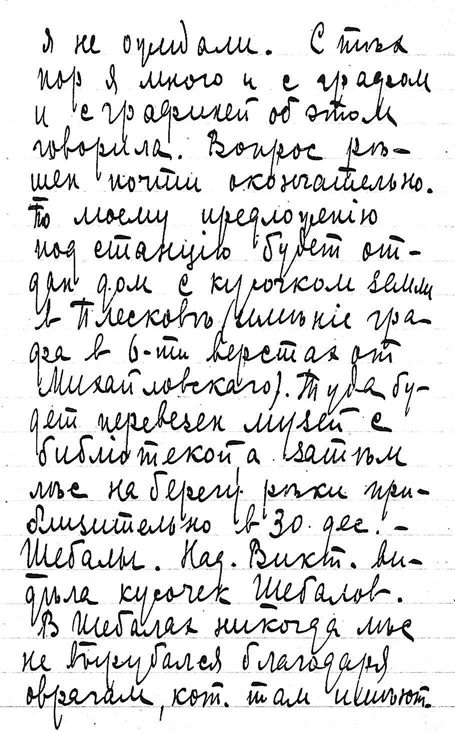 я не ожидали. С тѣх
пор я много и с графом
и с графиней об этом
говорила. Вопрос рѣ-
шен почти окончательно.
По моему предложенію
под станцію будет от-
дан дом с кусочком земли
в Плесковѣ (имѣніе гра-
фа в 6-ти верстах от
Михайловскаго). Туда бу-
дет перевезен музей с
библіотекой а затѣм
лѣс на берегу рѣки при-
близительно в 30 дес. -
Шебалы. Над. Викт. ви-
дѣла кусочек Шебалов.
В Шебалах никогда лѣс
не вырубался благодаря
оврагам, кот. там имѣют.